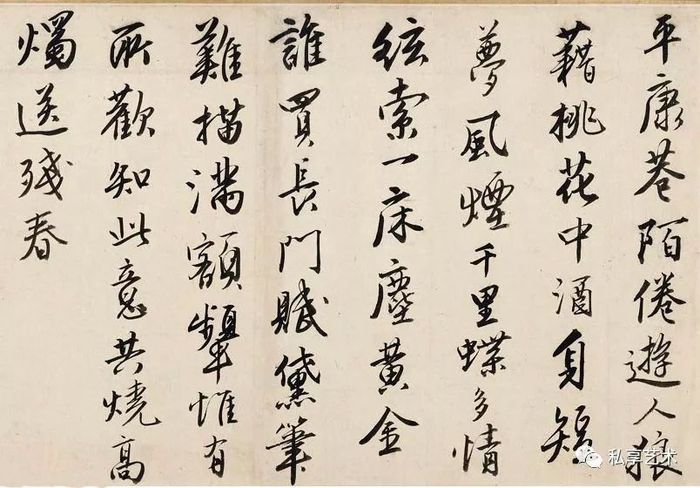 平康巷陌倦遊人狼
藉桃花中酒身短
夢風煙千里蝶多情
絃索一床塵黃金
誰買長門賦黛筆
難描滿額顰惟有
所歡知此意共燒高
燭送殘春
私享艺术